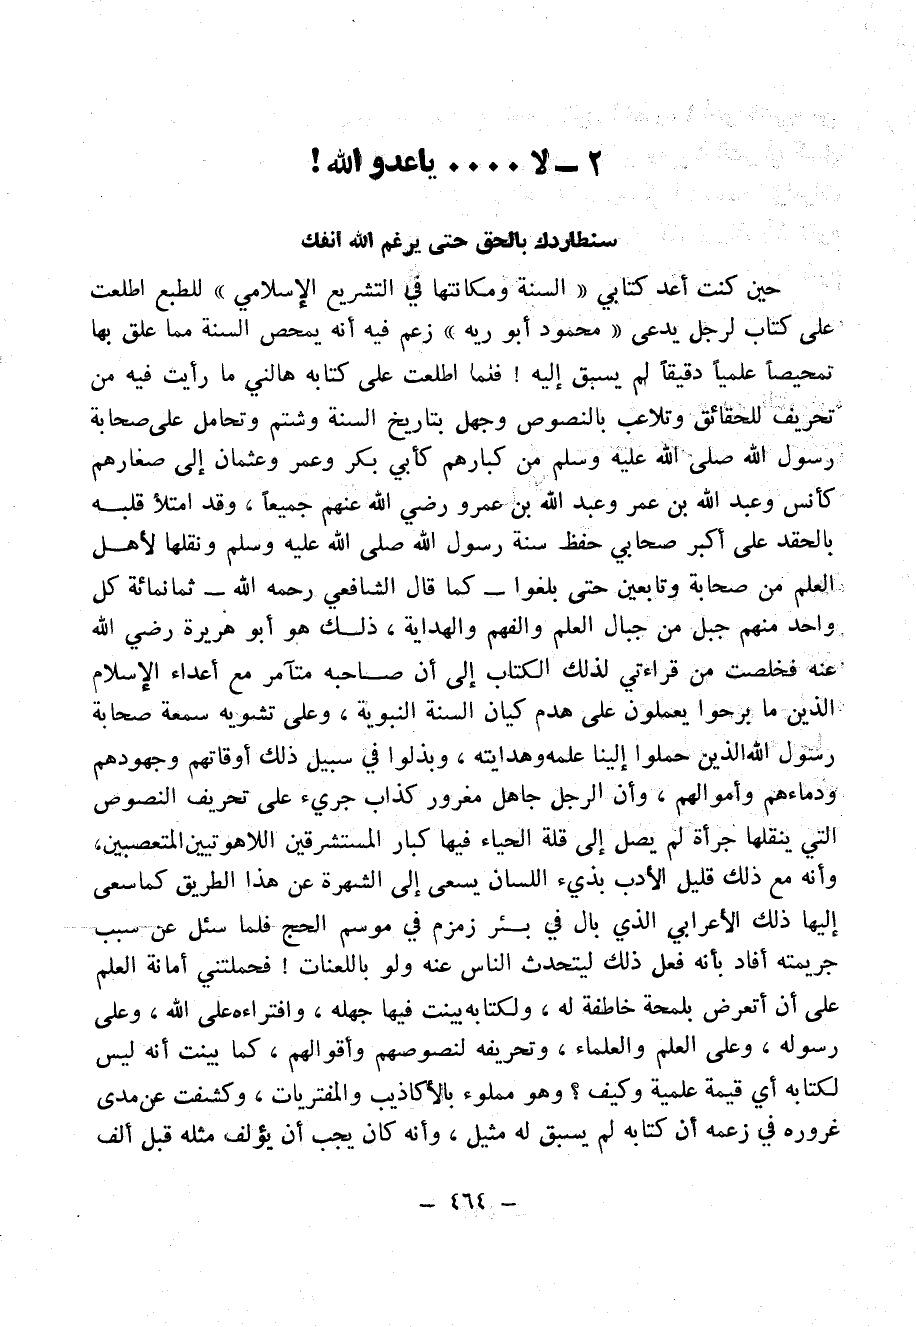 ٢ ــ لا . . . . ياعدو الله !
سنطاردك بالحق حتى يرغم الله انفك
حين كنت أعد كتابي « السنة ومكانتها في التشريع الإسلامي » للطبع اطلعت
على كتاب لرجل يدعى « محمود أبو ريه » زعم فيه أنه يمحص السنة مما علق بها
تمحيصاً علمياً دقيقاً لم يسبق إليه ! فلما اطلعت على كتابه هالني ما رأيت فيه من
تحريف للحقائق وتلاعب بالنصوص وجهل بتاريخ السنة وشتم وتحامل على صحابة
رسول الله صلى الله عليه وسلم من كبارهم كأبي بكر وعمر وعثمان إلى صغارهم
كأنس وعبد الله بن عمر وعبد الله بن عمرو رضي الله عنهم جميعاً ، وقد امتلأ قلبــه
بالحقد على أكبر صحابي حفظ سنة رسول الله صلى الله عليه وسلم ونقلها لأهــل
العلم من صحابة وتابعين حتى بلغوا ــ كما قال الشافعي رحمه الله ــ ثمانمائة كل
واحد منهم جبل من جبال العلم والفهم والهداية ، ذلــك هو أبو هريرة رضي الله
عنه فخلصت من قراءتي لذلك الكتاب إلى أن صــاحبه متآمر مع أعداء الإسلام
الذين ما برحوا يعملون على هدم كيان السنة النبوية ، وعلى تشويه سمعة صحابة
رسول الله الذين حملوا إلينا علمه وهدايته ، وبذلوا في سبيل ذلك أوقاتهم وجهودهم
ودماءهم وأموالهم ، وأن الرجل جاهل مغرور كذاب جريء على تحريف النصوص
التي ينقلها جرأة لم يصل إلى قلة الحياء فيها كبار المستشرقين اللاهوتيين المتعصبين،
وأنه مع ذلك قليل الأدب بذيء اللسان يسعى إلى الشهرة عن هذا الطريق كما سعى
إليها ذلك الأعرابي الذي بال في بــئر زمزم في موسم الحج فلما سئل عن سبب
جريمته أفاد بأنه فعل ذلك ليتحدث الناس عنه ولو باللعنات ! فحملتني أمانة العلم
على أن أتعرض بلمحة خاطفة له ، ولكتابه بينت فيها جهله ، وافتراءه على الله ، وعلى
رسوله ، وعلى العلم والعلماء ، وتحريفه لنصوصهم وأقوالهم ، كما بينت أنه ليس
لكتابه أي قيمة علمية وكيف ؟ وهو مملوء بالأكاذيب والمفتريات ، وكشفت عن مدى
غروره في زعمه أن كتابه لم يسبق له مثيل ، وأنه كان يجب أن يؤلف مثله قبل ألف
– ٤٦٤ –